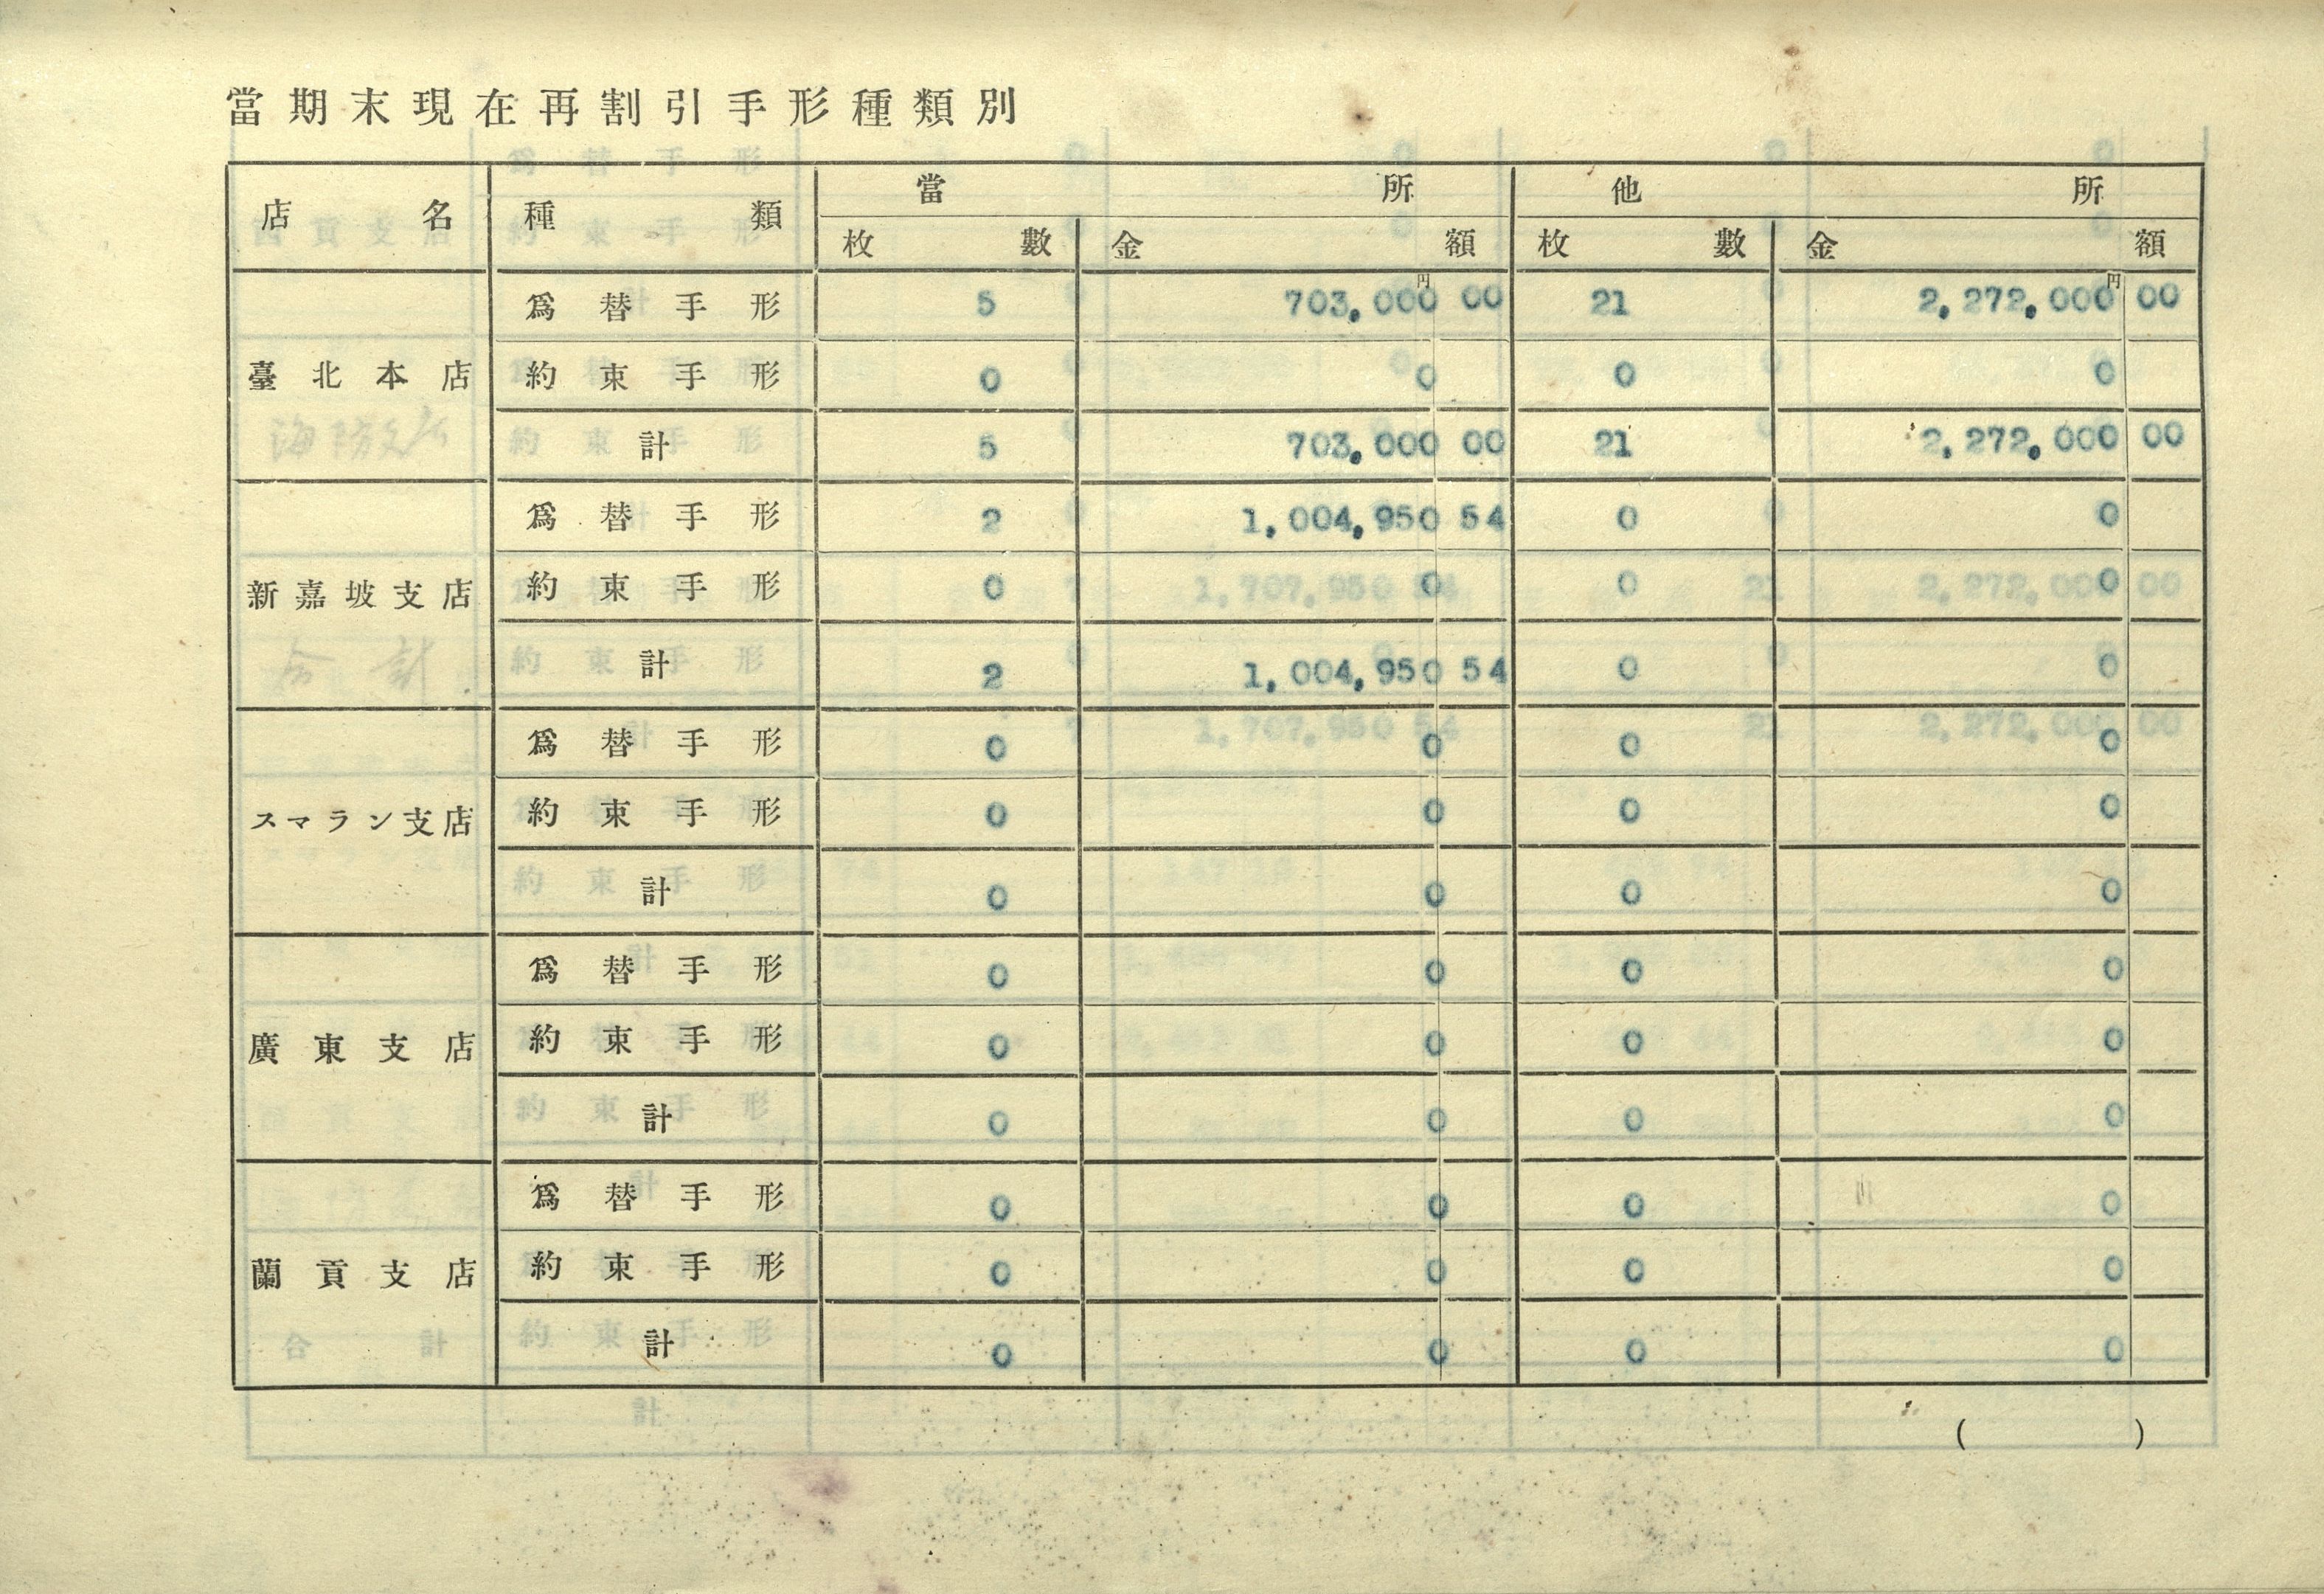 當期末現在再割引手形種類別
店名 種類 當所 他所
枚數 金額 枚數 金額
円 円
爲替手形 5 703,000 00 21 2,272,000 00
臺北本店 約束手形 0 0 0 0
計 5 703,000 00 21 2,272,000 00
爲替手形 2 1,004,950 54 0 0
新嘉坡支店 約束手形 0 0 0 0
計 2 1,004,950 54 0 0
爲替手形 0 0 0 0
スマラン支店 約束手形 0 0 0 0
計 0 0 0 0
爲替手形 0 0 0 0
廣東支店 約束手形 0 0 0 0
計 0 0 0 0
爲替手形 0 0 0 0
蘭貢支店 約束手形 0 0 0 0
計 0 0 0 0
( )